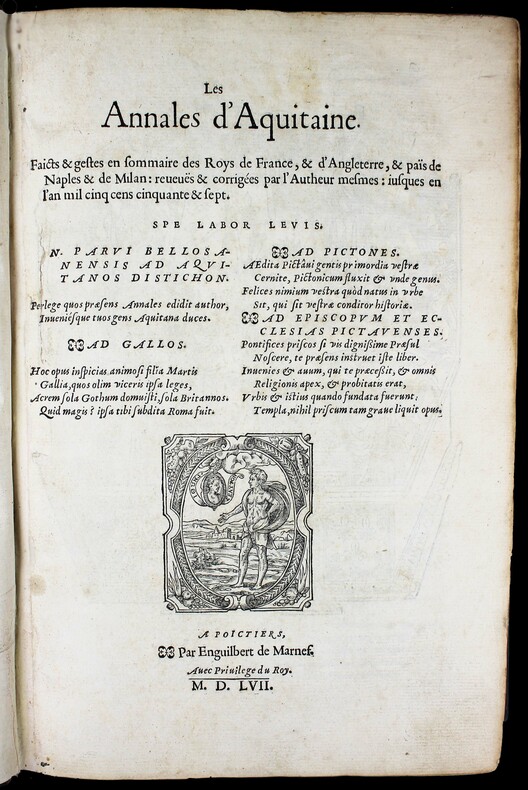 Les
Annales d'Aquitaine.
Faicts & gestes en sommaire des Roys de France, & d'Angleterre, & païs de
Naples & de Milan: reueuës & corrigées par l'Autheur mesmes: iusques en
l'an mil cinq cens cinquante & sept.
SPE LABOR LEVIS.
N. PARVI BELLOSA-
NENSIS AD AQVI-
TANOS DISTICHON.
Perlege quos præsens Annales edidit author,
Inueniésque tuos gens Aquitana duces.
AD GALLOS.
Hoc opus inspicias animosi filia Martis
Gallia, quos olim viceris ipsa leges,
Acrem sola Gothum domuisti, sola Britannos.
Quid magis? ipsa tibi subdita Roma fuit.
AD PICTONES.
AEdita Pictâui gentis primordia vestræ
Cernite, Pictonicum fluxit & vnde genus.
Felices nimium vestra quòd natus in vrbe
Sit, qui sit vestræ conditor historiæ.
AD EPISCOPVM ET EC-
CLESIAS PICTAVENSES.
Pontifices priscos si vis dignißime Præsul
Noscere, te præsens instruet iste liber.
Inuenies & auum, qui te præceßit, & omnis
Religionis apex, & probitatis erat,
Vrbis & istius quando fundata fuerunt,
Templa, nihil priscum tam graue liquit opus.
A POICTIERS,
Par Enguilbert de Marnef.
Auec Priuilege du Roy.
M. D. LVII.